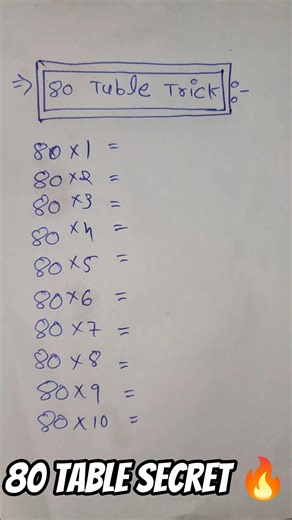 ⇒ 80 Table Trick :-
80 × 1 =
80 × 2 =
80 × 3 =
80 × 4 =
80 × 5 =
80 × 6 =
80 × 7 =
80 × 8 =
80 × 9 =
80 × 10 =
80 TABLE SECRET 🔥